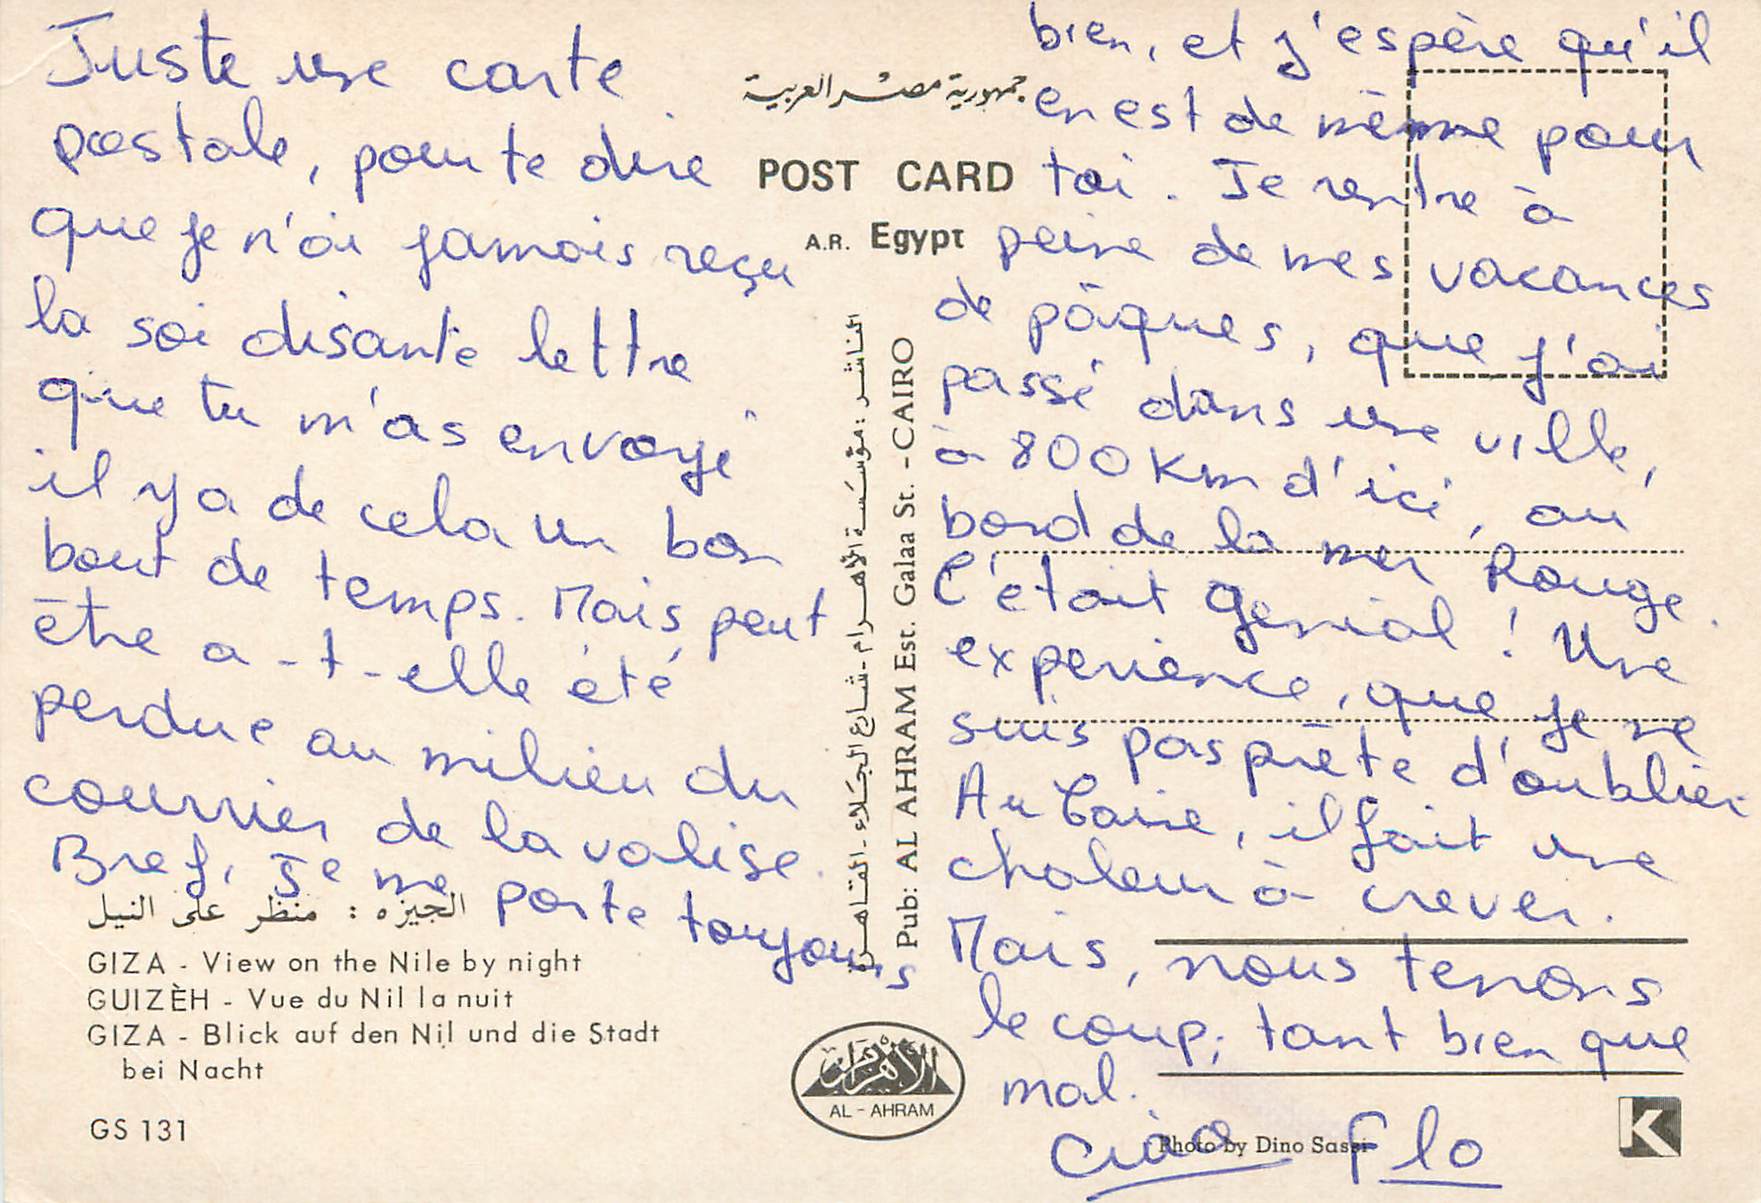 Juste une carte
postale, pour te dire
que je n'ai jamais reçu
la soi disante lettre
que tu m'as envoyé
il y a de cela un bon
bout de temps. Mais peut
être a-t-elle été
perdue au milieu du
courrier de la valise.
Bref, je me porte toujours
bien, et j'espère qu'il
en est de même pour
toi. Je rentre à
peine de mes vacances
de pâques, que j'ai
passé dans une ville,
à 800 Km d'ici, au
bord de la mer Rouge.
C'était genial ! Une
experience, que je ne
suis pas prête d'oublier
Au Caire, il fait une
chaleur à crever.
Mais, nous tenons
le coup; tant bien que
mal.
Ciao Flo
جمهورية مصر العربية
POST CARD
A.R. Egypt
الناشر : مؤسسة الأهرام - شارع الجلاء - القاهرة
Pub: AL AHRAM Est. Galaa St. - CAIRO
الجيزه : منظر على النيل
GIZA - View on the Nile by night
GUIZÈH - Vue du Nil la nuit
GIZA - Blick auf den Nil und die Stadt
bei Nacht
GS 131
الأهرام
AL - AHRAM
Photo by Dino Sassi
K